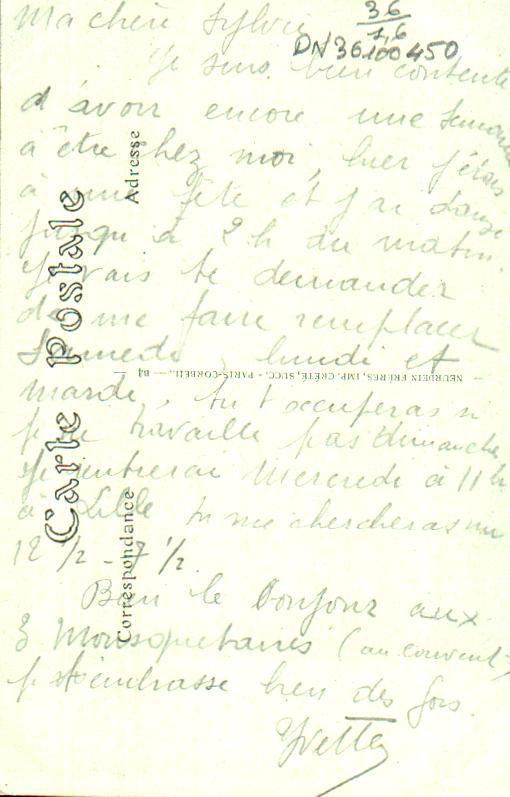 Ma chère Sylvie
36
1,6
DN36100450
Je suis bien contente
d'avoir encore une semaine
à être chez moi, hier j'étais
à une fête et j'ai dansé
jusqu'à 2 h du matin.
Je vais te demander
de me faire remplacer
Samedi, lundi et
mardi, tu t'occuperas si
je ne travaille pas dimanche
Je rentrerai Mercredi à 11h
à Lille tu me chercheras un
12 ½ - 7 ½.
Bien le bonjour aux
3 Mousquetaires (au couvent)
je t'embrasse bien des fois.
Yvette
Carte postale
Correspondance
Adresse
NEURDEIN FRÈRES, IMP. CRÉTÉ, SUCC. - PARIS-CORBEIL. — B4